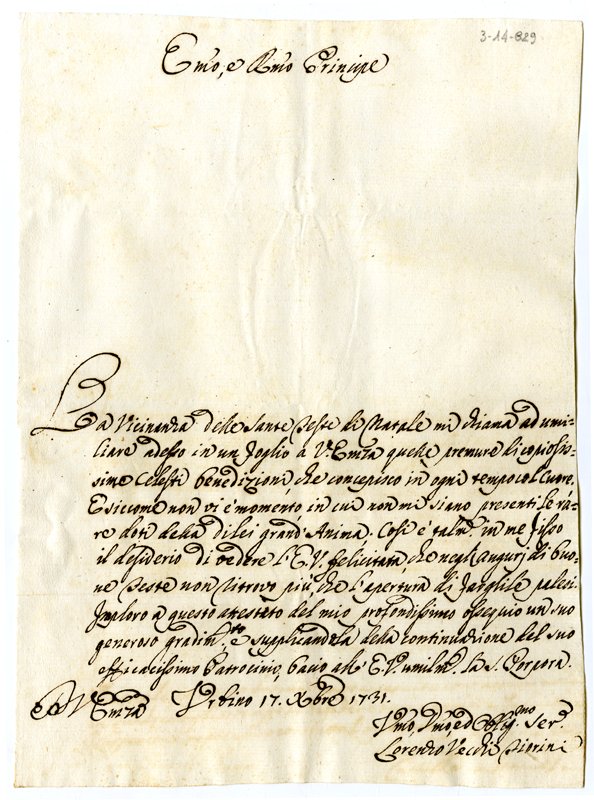 3-14-829
Emo, e Rmo Principe
La Vicinanza delle Sante Feste di Natale mi chiama ad umi=
liare adesso in un foglio à V. Emza quelle premure di copiosis=
sime Celesti benedizioni, che concepisco in ogni tempo col Cuore.
E siccome non vi è momento in cui non mi siano presenti le rà=
re doti della di lei grand'Anima. Così è talm. in me fisso
il desiderio di vedere l'E.V. felicitata, che negli augurj di buo=
ne Feste non ritrovo più, che l'apertura di fargliele palesi.
Imploro a questo attestato del mio profondissimo ossequio un suo
generoso gradim.to, e supplicandola della continuazione del suo
efficacissimo Patrocinio, bacio all'E.V. umilm. la S. Porpora.
Di V Emza Urbino 17. Xbre 1731.
Vmo, Dmo ed Oblig.mo Ser.
Lorenzo Vecchi Fiorini